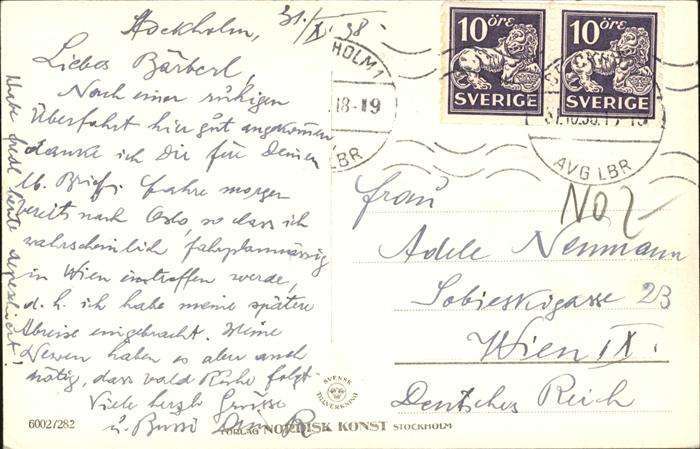 Stockholm, 31./X. 38.
Liebes Bärberl,
Nach einer ruhigen
Überfahrt hier gut angekommen
danke ich Dir für Deinen
lb. Brief. Fahre morgen
bereits nach Oslo, so dass ich
wahrscheinlich fahrplanmässig
in Wien eintreffen werde,
d. h. ich habe meine spätere
Abreise eingebracht. Meine
Nerven haben es aber auch
nötig, dass bald Ruhe folgt.
Viele herzl. Grüsse
u. Bussi
Habe heute
10 ÖRE
SVERIGE
10 ÖRE
SVERIGE
HOLM 1
18-19
LBR
STOCKHOLM
31.10.38.
AVG LBR
No 2
Frau
Adele Neumann
Sobieskigasse 23
Wien IX.
Deutsches Reich
SVENSK
TILLVERKNING
60027282
FÖRLAG NORDISK KONST STOCKHOLM